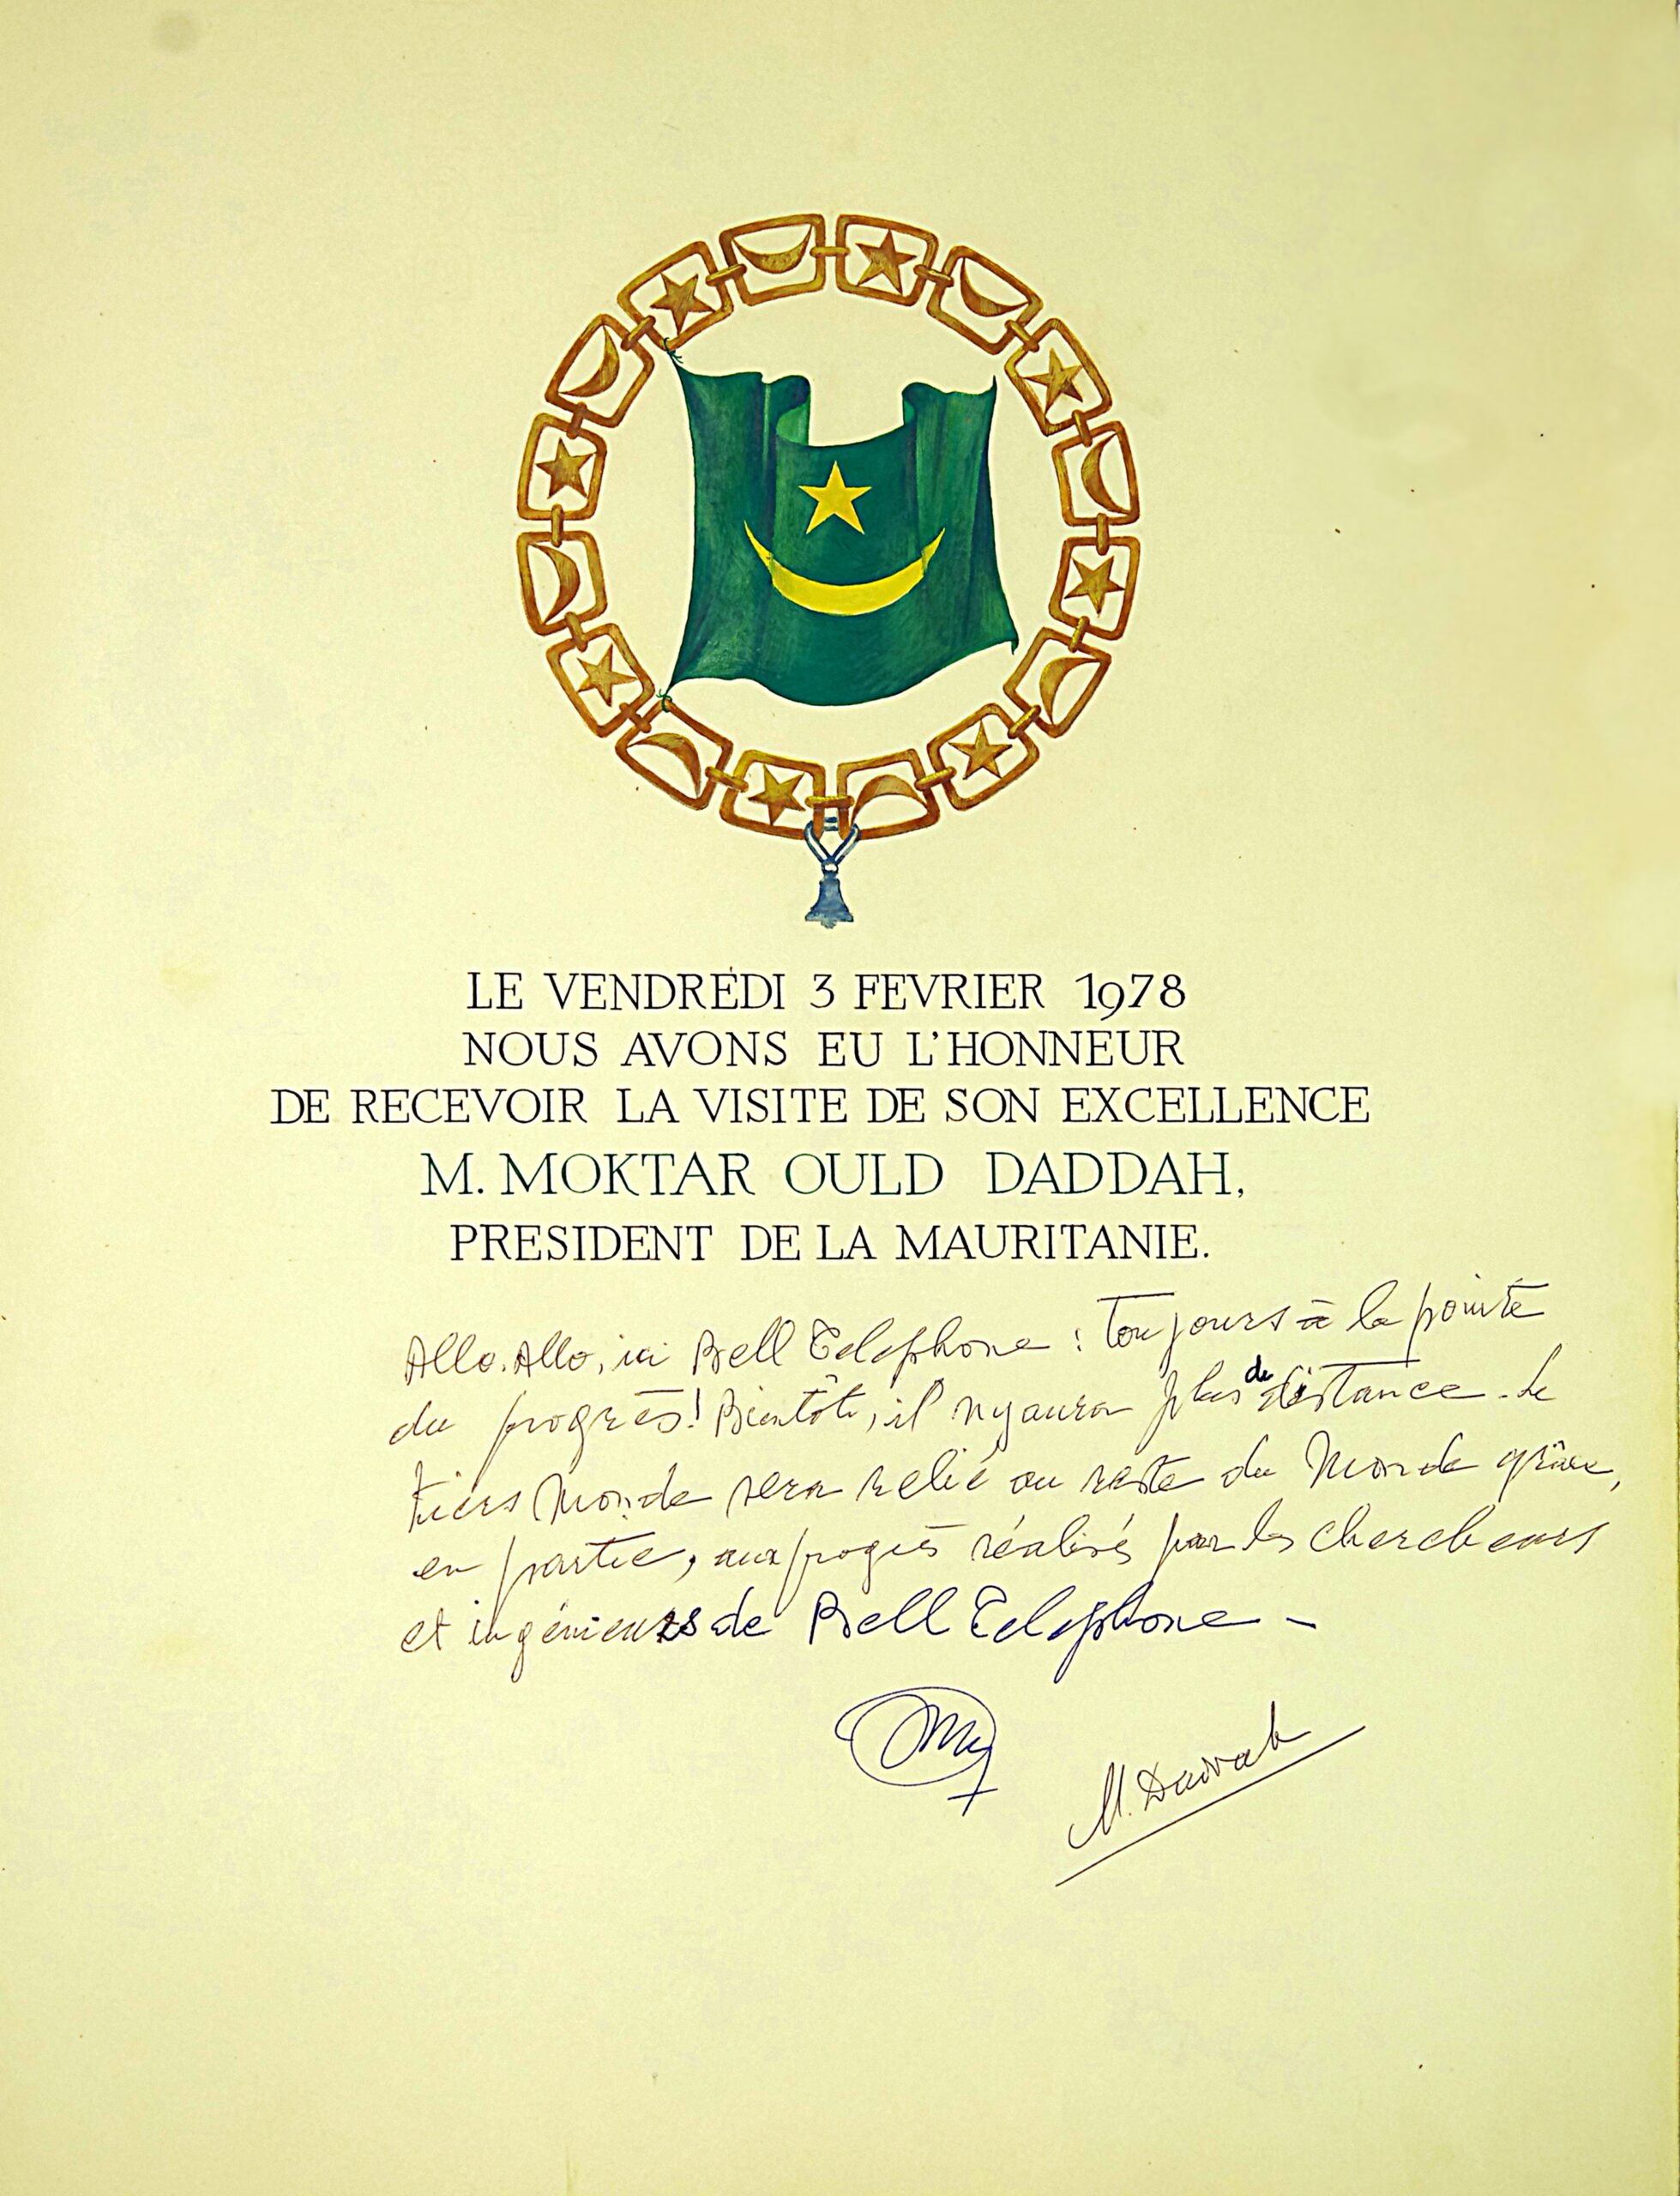 LE VENDRÉDI 3 FEVRIER 1978
NOUS AVONS EU L'HONNEUR
DE RECEVOIR LA VISITE DE SON EXCELLENCE
M. MOKTAR OULD DADDAH,
PRESIDENT DE LA MAURITANIE.
Allo. Allo, ici Bell Telephone : Toujours à la pointe
du progrès! Bientôt, il n'y aura plus de distance. Le
tiers Monde sera relié au reste du Monde grâce,
en partie, aux progrès réalisés par les chercheurs
et ingénieurs de Bell Telephone -
M. Daddah